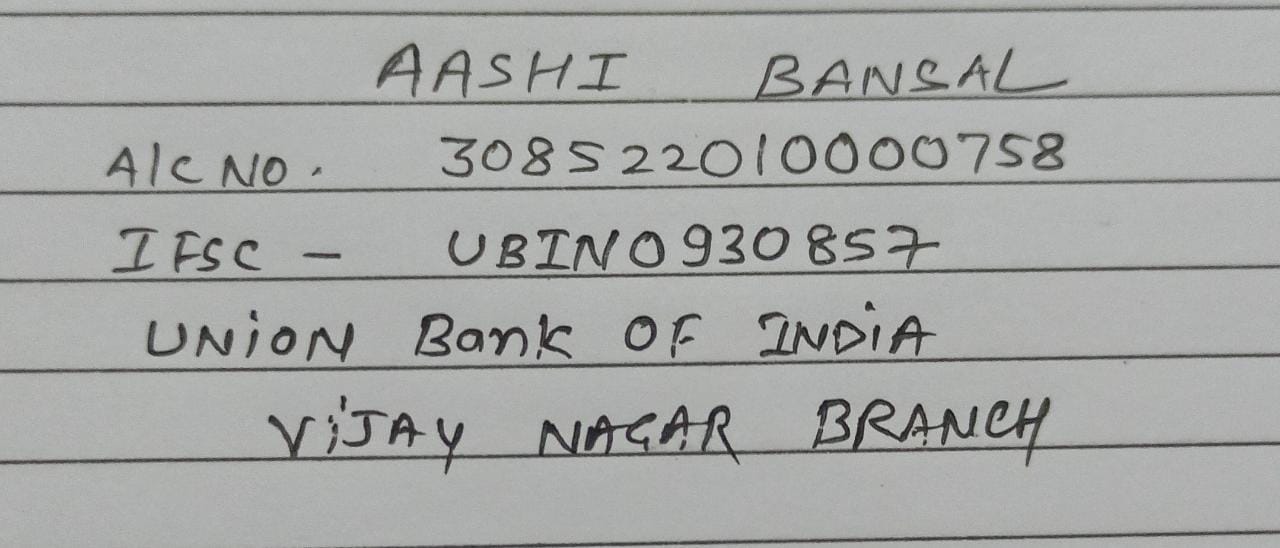 AASHI BANSAL
A/C NO. 308522010000758
IFSC - UBIN0930857
UNiON Bank OF INDiA
ViJAY NAGAR BRANCH